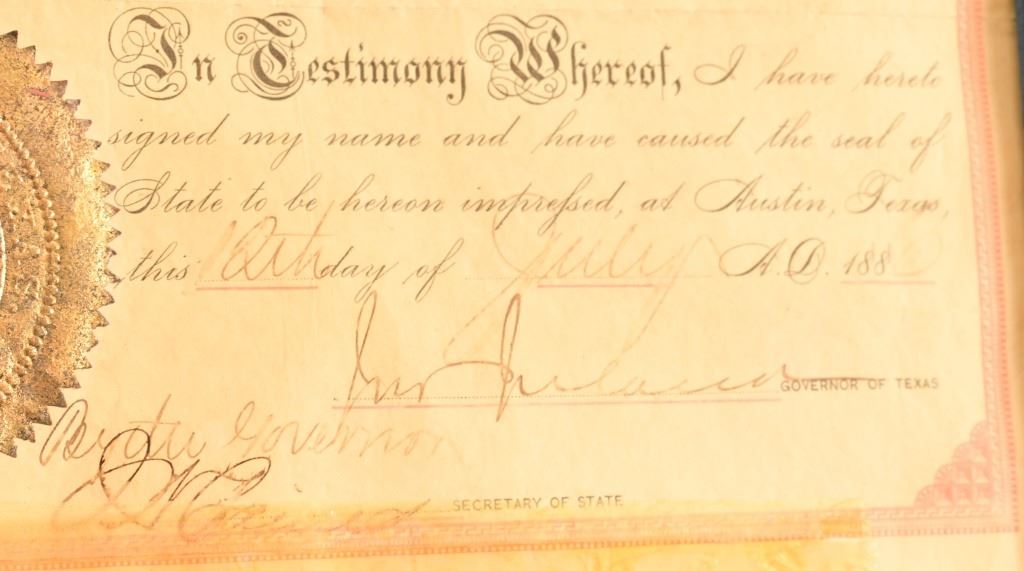 In Testimony Whereof, I have hereto
signed my name and have caused the seal of
State to be hereon impressed, at Austin, Texas,
this 12th day of July A.D. 188
Jno Ireland GOVERNOR OF TEXAS
By the Governor
SECRETARY OF STATE